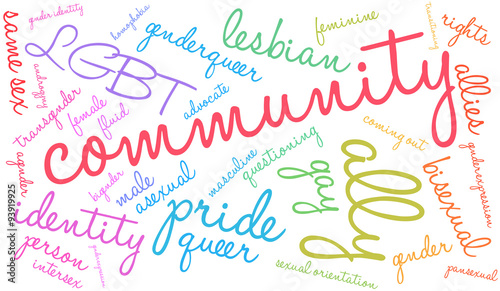 gender identity
homophobic
genderqueer
lesbian
feminine
transitioning
rights
same sex
LGBT
androgyny
advocate
allies
transgender
female
fluid
community
coming out
genderexpression
agender
bigender
male
asexual
masculine
questioning
gay
ally
bisexual
pansexual
identity
pride
queer
person
intersex
gender
sexual orientation
Adobe Stock | #93919925